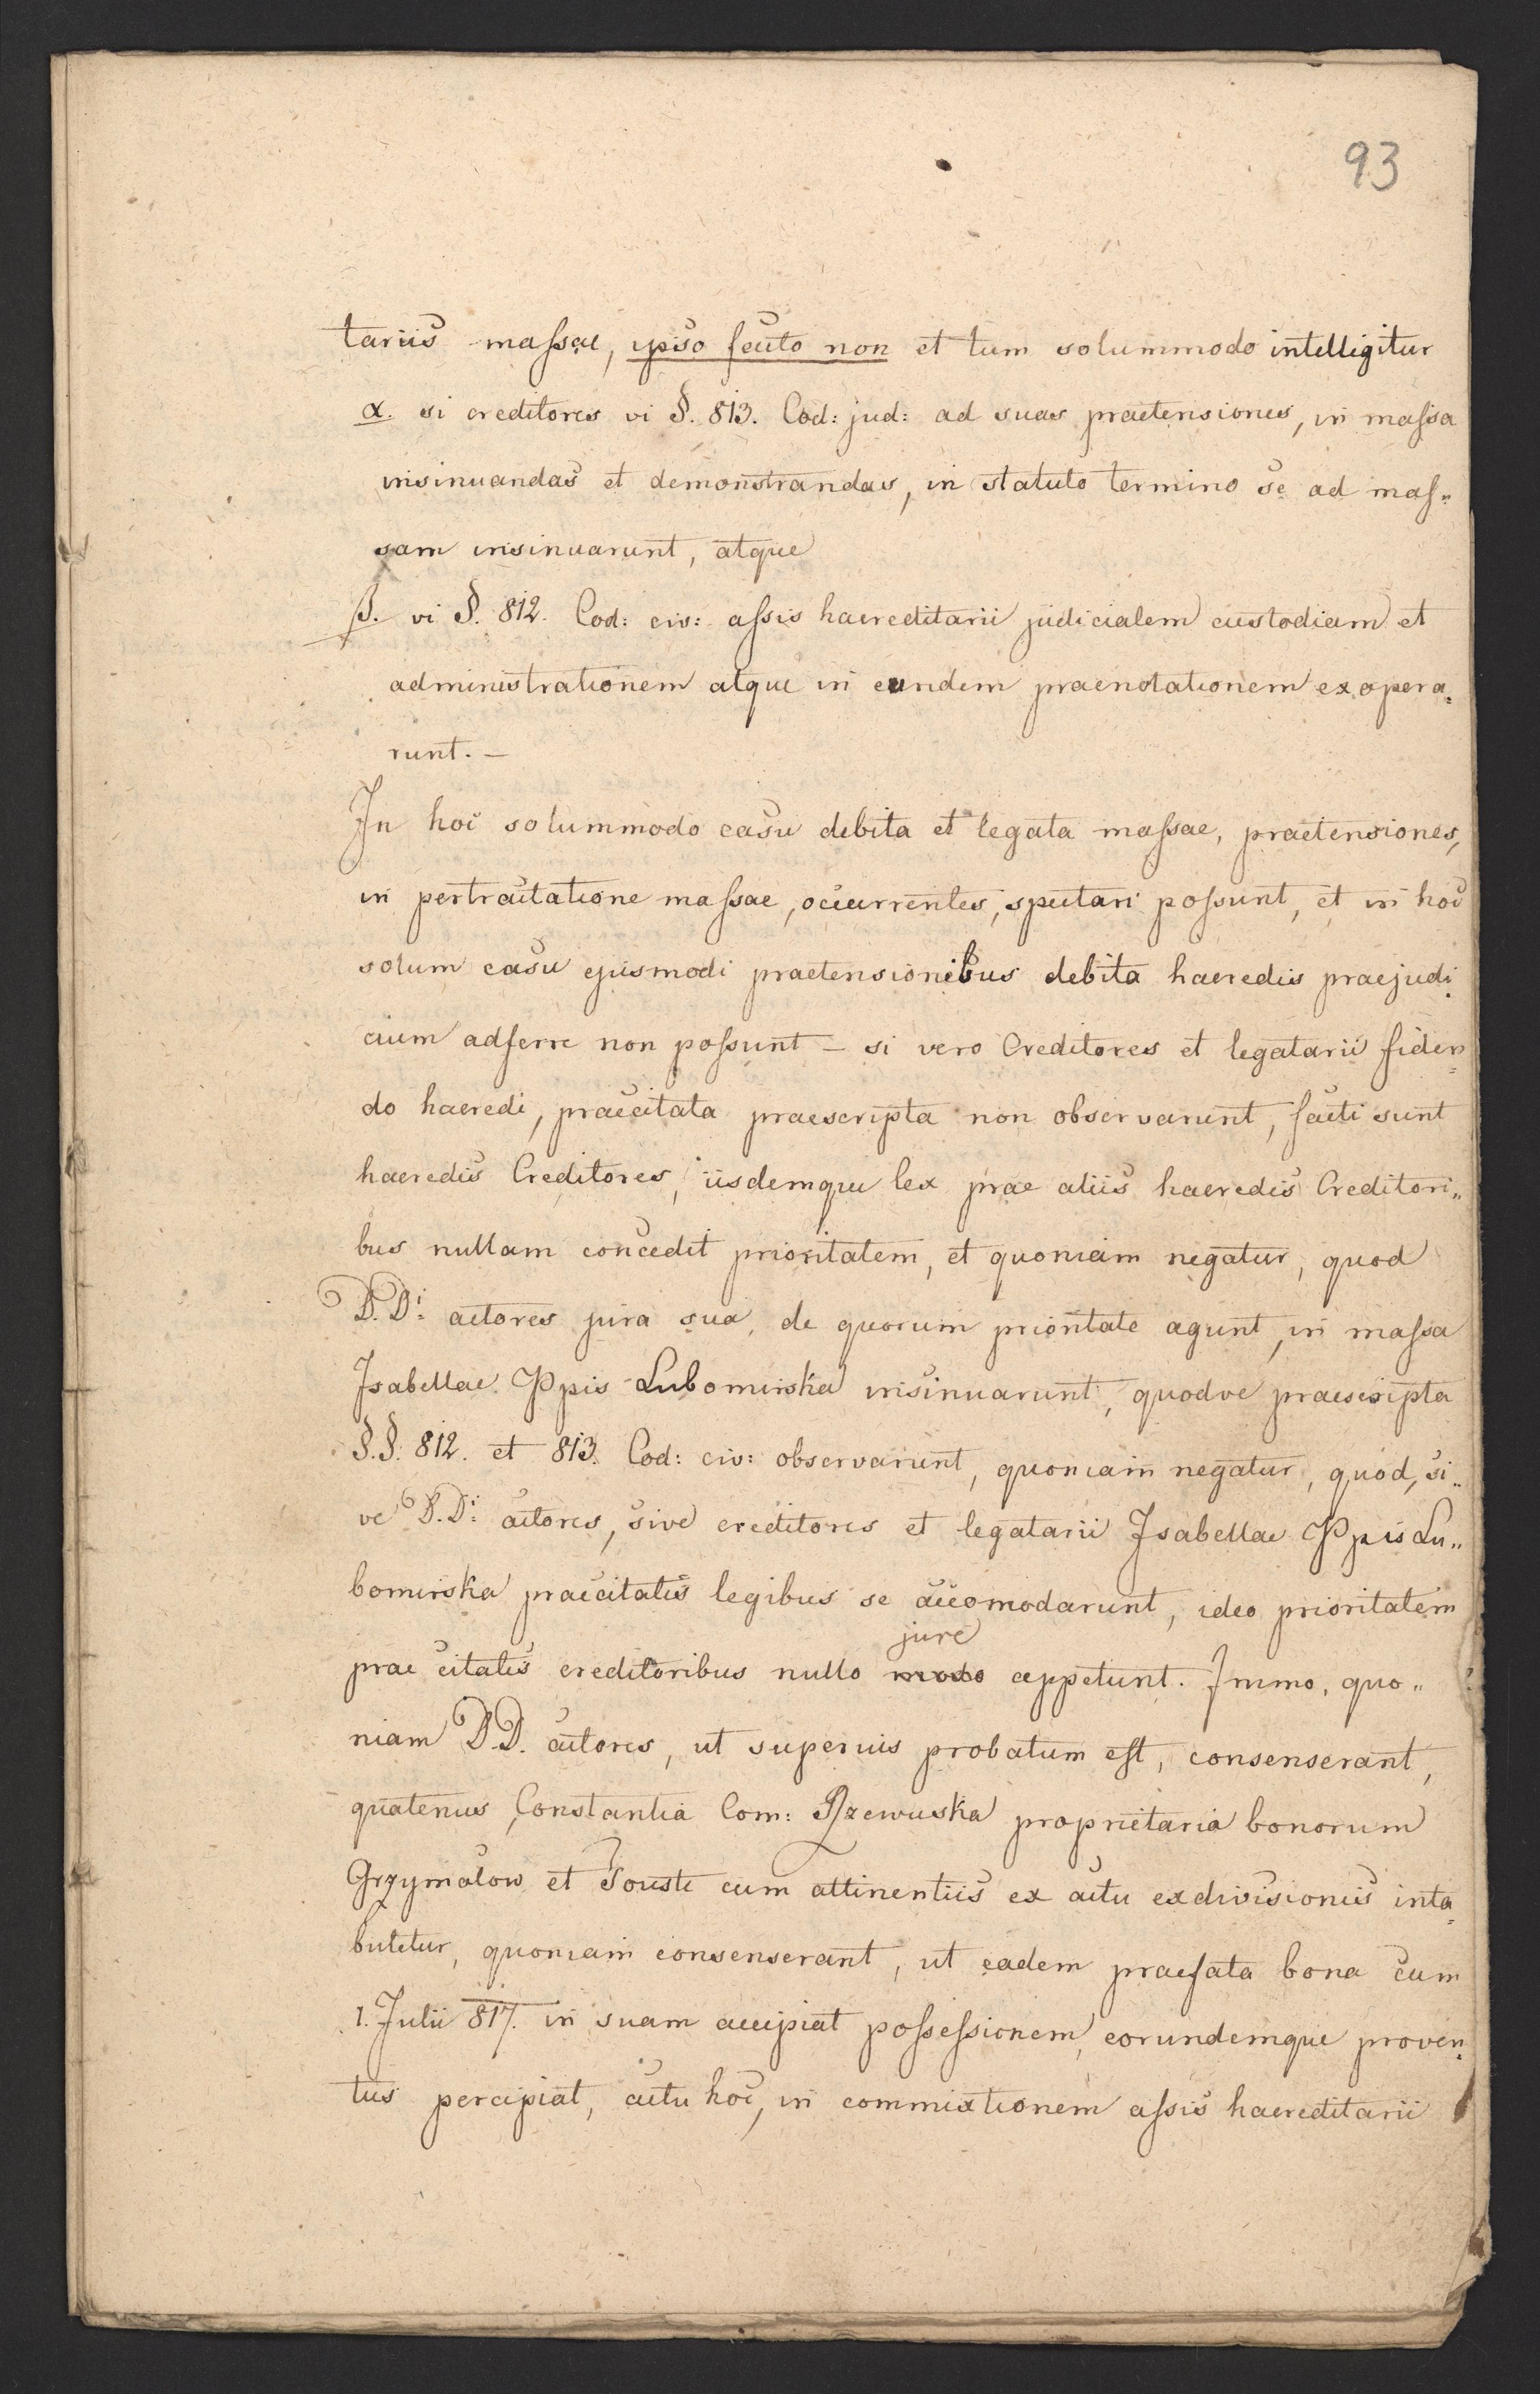 93
tariis massae, ipso facto non et tum solummodo intelligitur
α. si creditores vi §. 813. Cod: jud: ad suas praetensiones, in massa
insinuandas et demonstrandas, in statuto termino se ad mas„
sam insinuarunt, atque
β. vi §. 812. Cod: civ: assis haereditarii judicialem custodiam et
administrationem atque in eundem praenotationem exopera„
runt. —
In hoc solummodo casu debita et legata massae, praetensiones,
in pertractatione massae, occurrentes, spectari possunt, et in hoc
solum casu ejusmodi praetensionibus debita haeredis praejudi„
cium adferre non possunt — si vero Creditores et legatarii fiden„
do haeredi, praecitata praescripta non observarunt, facti sunt
haeredis Creditores, iisdemque lex prae aliis haeredis Creditori„
bus nullam concedit prioritatem, et quoniam negatur, quod
D.Di: actores jura sua, de quorum prioritate agunt, in massa
Isabellae Ppis Lubomirska insinuarunt, quodve praescripta
§.§. 812. et 813. Cod: civ: observarunt, quoniam negatur, quod, si„
ve D.Di: actores, sive creditores et legatarii Isabellae Ppis Lu„
bomirska praecitatis legibus se accomodarunt, ideo prioritatem
jure
prae citatis creditoribus nullo modo appetunt. Immo, quo„
niam D.D. actores, ut superius probatum est, consenserant,
quatenus Constantia Com: Rzewuska proprietaria bonorum
Grzymałow et Touste cum attinentiis ex actu exdivisionis inta„
buletur, quoniam consenserant, ut eadem praefata bona cum
1. Julii 817. in suam accipiat possessionem, eorundemque proven„
tus percipiat, actu hoc, in commixtionem assis haereditarii